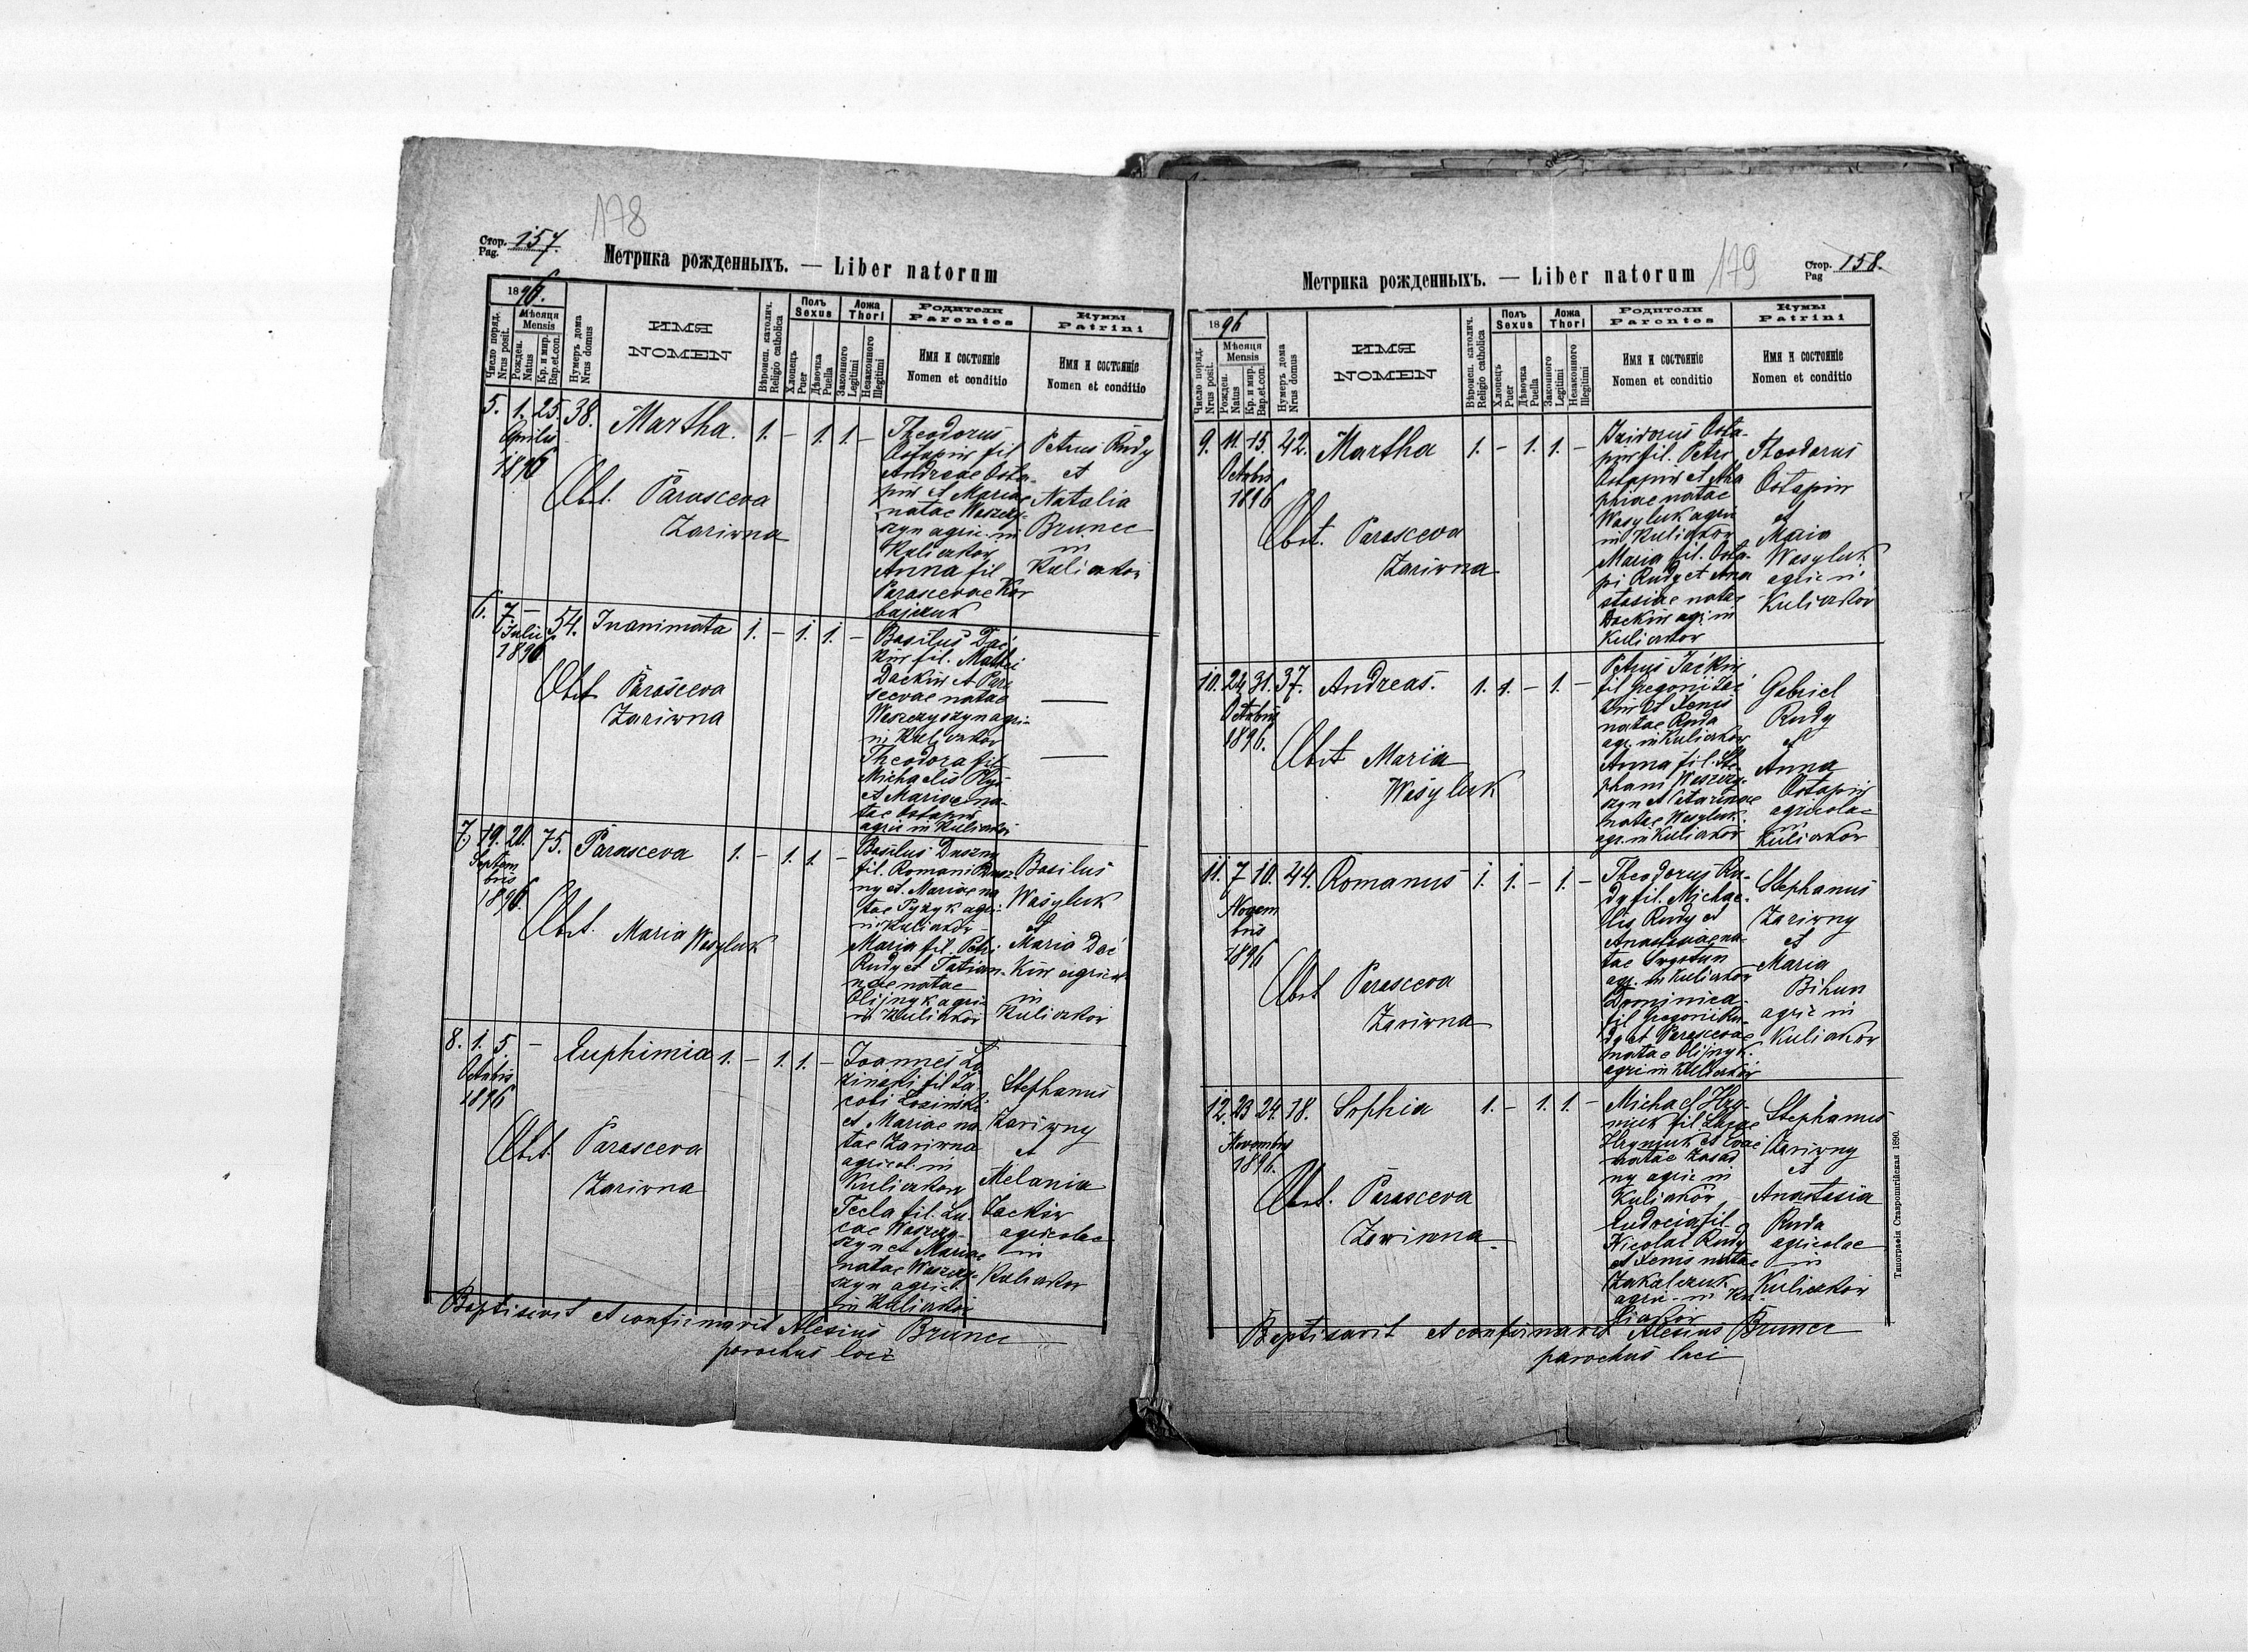 178
Стор. 157.
Pag.
Метрика рожденныхъ. — Liber natorum
1896.
Число поряд.
Nrus posit.
Мѣсяця
Mensis
Рожден.
Natus
Кр. и мир.
Bap.et.con.
Нумеръ дома
Nrus domus
ИМЯ
NOMEN
Вѣроисп. католич.
Religio catholica
Полъ
Sexus
Хлопецъ
Puer
Дѣвочка
Puella
Ложа
Thori
Законного
Legitimi
Незаконного
Illegitimi
Родители
Parentes
Имя и состояніе
Nomen et conditio
Кумы
Patrini
Имя и состояніе
Nomen et conditio
5. 1. 25. 38. Martha. 1. – 1. 1. –
Aprilis
1896
Obst. Parasceva
Zariwna
Theodorus
Ostapiw fil
Andreae Osta-
piw et Mariae
natae Waszczy-
szyn agric. in
Kuliczkow
Anna fil
Parascevae Kor
bajczuk
Petrus Rudy
et
Natalia
Brunec
in
Kuliczkow
6. 7. – 54. Inanimata 1. – 1. 1. –
Julii
1896
Obst Parasceva
Zariwna
Basilus Dać
kiw fil. Mathei
Dackiw et Para
scevae natae
Waszczyszyn agri-
in Kuliczkow
Theodora fil
Michaelis Plys
et Mariae na-
tae Ostapiw
agric in Kuliczkow
7. 19. 20. 75. Parasceva 1. – 1. 1. –
Septem
bris
1896.
Obst. Maria Wasyluk
Basilus Duszny
fil. Romani Dusz-
ny et Mariae na
tae Pyzyk agri-
in Kuliczkow
Maria fil. Petri
Rudy et Tatian-
nae natae
Olijnyk agri-
in Kuliczkow
Basilus
Wasyluk
et
Maria Dać
kiw agricol
in
Kuliczkow
8. 1. 5. – Euphimia 1. – 1. 1. –
Octobris
1896
Obst. Parasceva
Zariwna
Joannes Lo
zinski fil Ja-
cobi Lozinski
et Mariae na
tae Zariwna
agricol. in
Kuliczkow
Tecla fil. Lu-
cae Waszczy-
szyn et Mariae
natae Waszczy-
szyn agricol
in Kuliczkow
Stephanus
Zariwny
et
Melania
Jackiw
agricolae
in
Kuliczkow
Baptisavit et confirmavit Alesius Brunec
parochus loci
179
Метрика рожденныхъ. — Liber natorum
Стор. 158.
Pag
1896
Число поряд.
Nrus posit.
Мѣсяця
Mensis
Рожден.
Natus
Кр. и мир.
Bap.et.con.
Нумеръ дома
Nrus domus
ИМЯ
NOMEN
Вѣроисп. католич.
Religio catholica
Полъ
Sexus
Хлопецъ
Puer
Дѣвочка
Puella
Ложа
Thori
Законного
Legitimi
Незаконного
Illegitimi
Родители
Parentes
Имя и состояніе
Nomen et conditio
Кумы
Patrini
Имя и состояніе
Nomen et conditio
9. 11. 15. 42. Martha 1. – 1. 1. –
Octobris
1896
Obst. Parasceva
Zariwna
Isidorus Osta-
piw fil. Petri
Ostapiw et Aga
phiae natae
Wasyluk agric
in Kuliczkow
Maria fil. Osta-
pi Rudy et Ana
stasiae natae
Dackiw agr. in
Kuliczkow
Theodorus
Ostapiw
et
Maria
Wasyluk
agric in
Kuliczkow
10. 24. 31. 37. Andreas. 1. 1. – 1. –
Octobris
1896.
Obst Maria
Wasyluk
Petrus Jaćkiw
fil Gregorii Jać
kiw et Xenis
natae Ruda
agr. in Kuliczkow
Anna fil. Ste-
phani Waszczy-
szyn et Catarinae
natae Wasyluk
agr. in Kuliczkow
Gabriel
Rudy
et
Anna
Ostapiw
agricolae
in
Kuliczkow
11. 7 10. 44. Romanus 1. 1. – 1. –
Novem
bris
1896
Obst Parasceva
Zariwna
Theodorus Ru-
dy fil. Michae-
lis Rudy et
Anastasiae na-
tae
agr. in Kuliczkow
Dominica
fil Gregorii Ru-
dy et Parascevae
natae Olijnyk.
agric in Kuliczkow
Stephanus
Zariwny
et
Maria
Bihun
agric in
Kuliczkow
12. 23 24. 18. Sophia 1. – 1. 1. –
Novembris
1896.
Obst. Parasceva
Zariwna
Michael Hry-
niuk fil Lucae
Hryniuk et Evae
natae Zasad
ny agric in
Kuliczkow
Eudocia fil
Nicolai Rudy
et Xenis natae
Zakalczuk
agric in Ku-
liczkow
Stephanus
Zariwny
et
Anastasia
Ruda
agricolae
in
Kuliczkow
Baptisavit et confirmavit Alesius Brunec
parochus loci
Типографія Ставропигійская 1890.